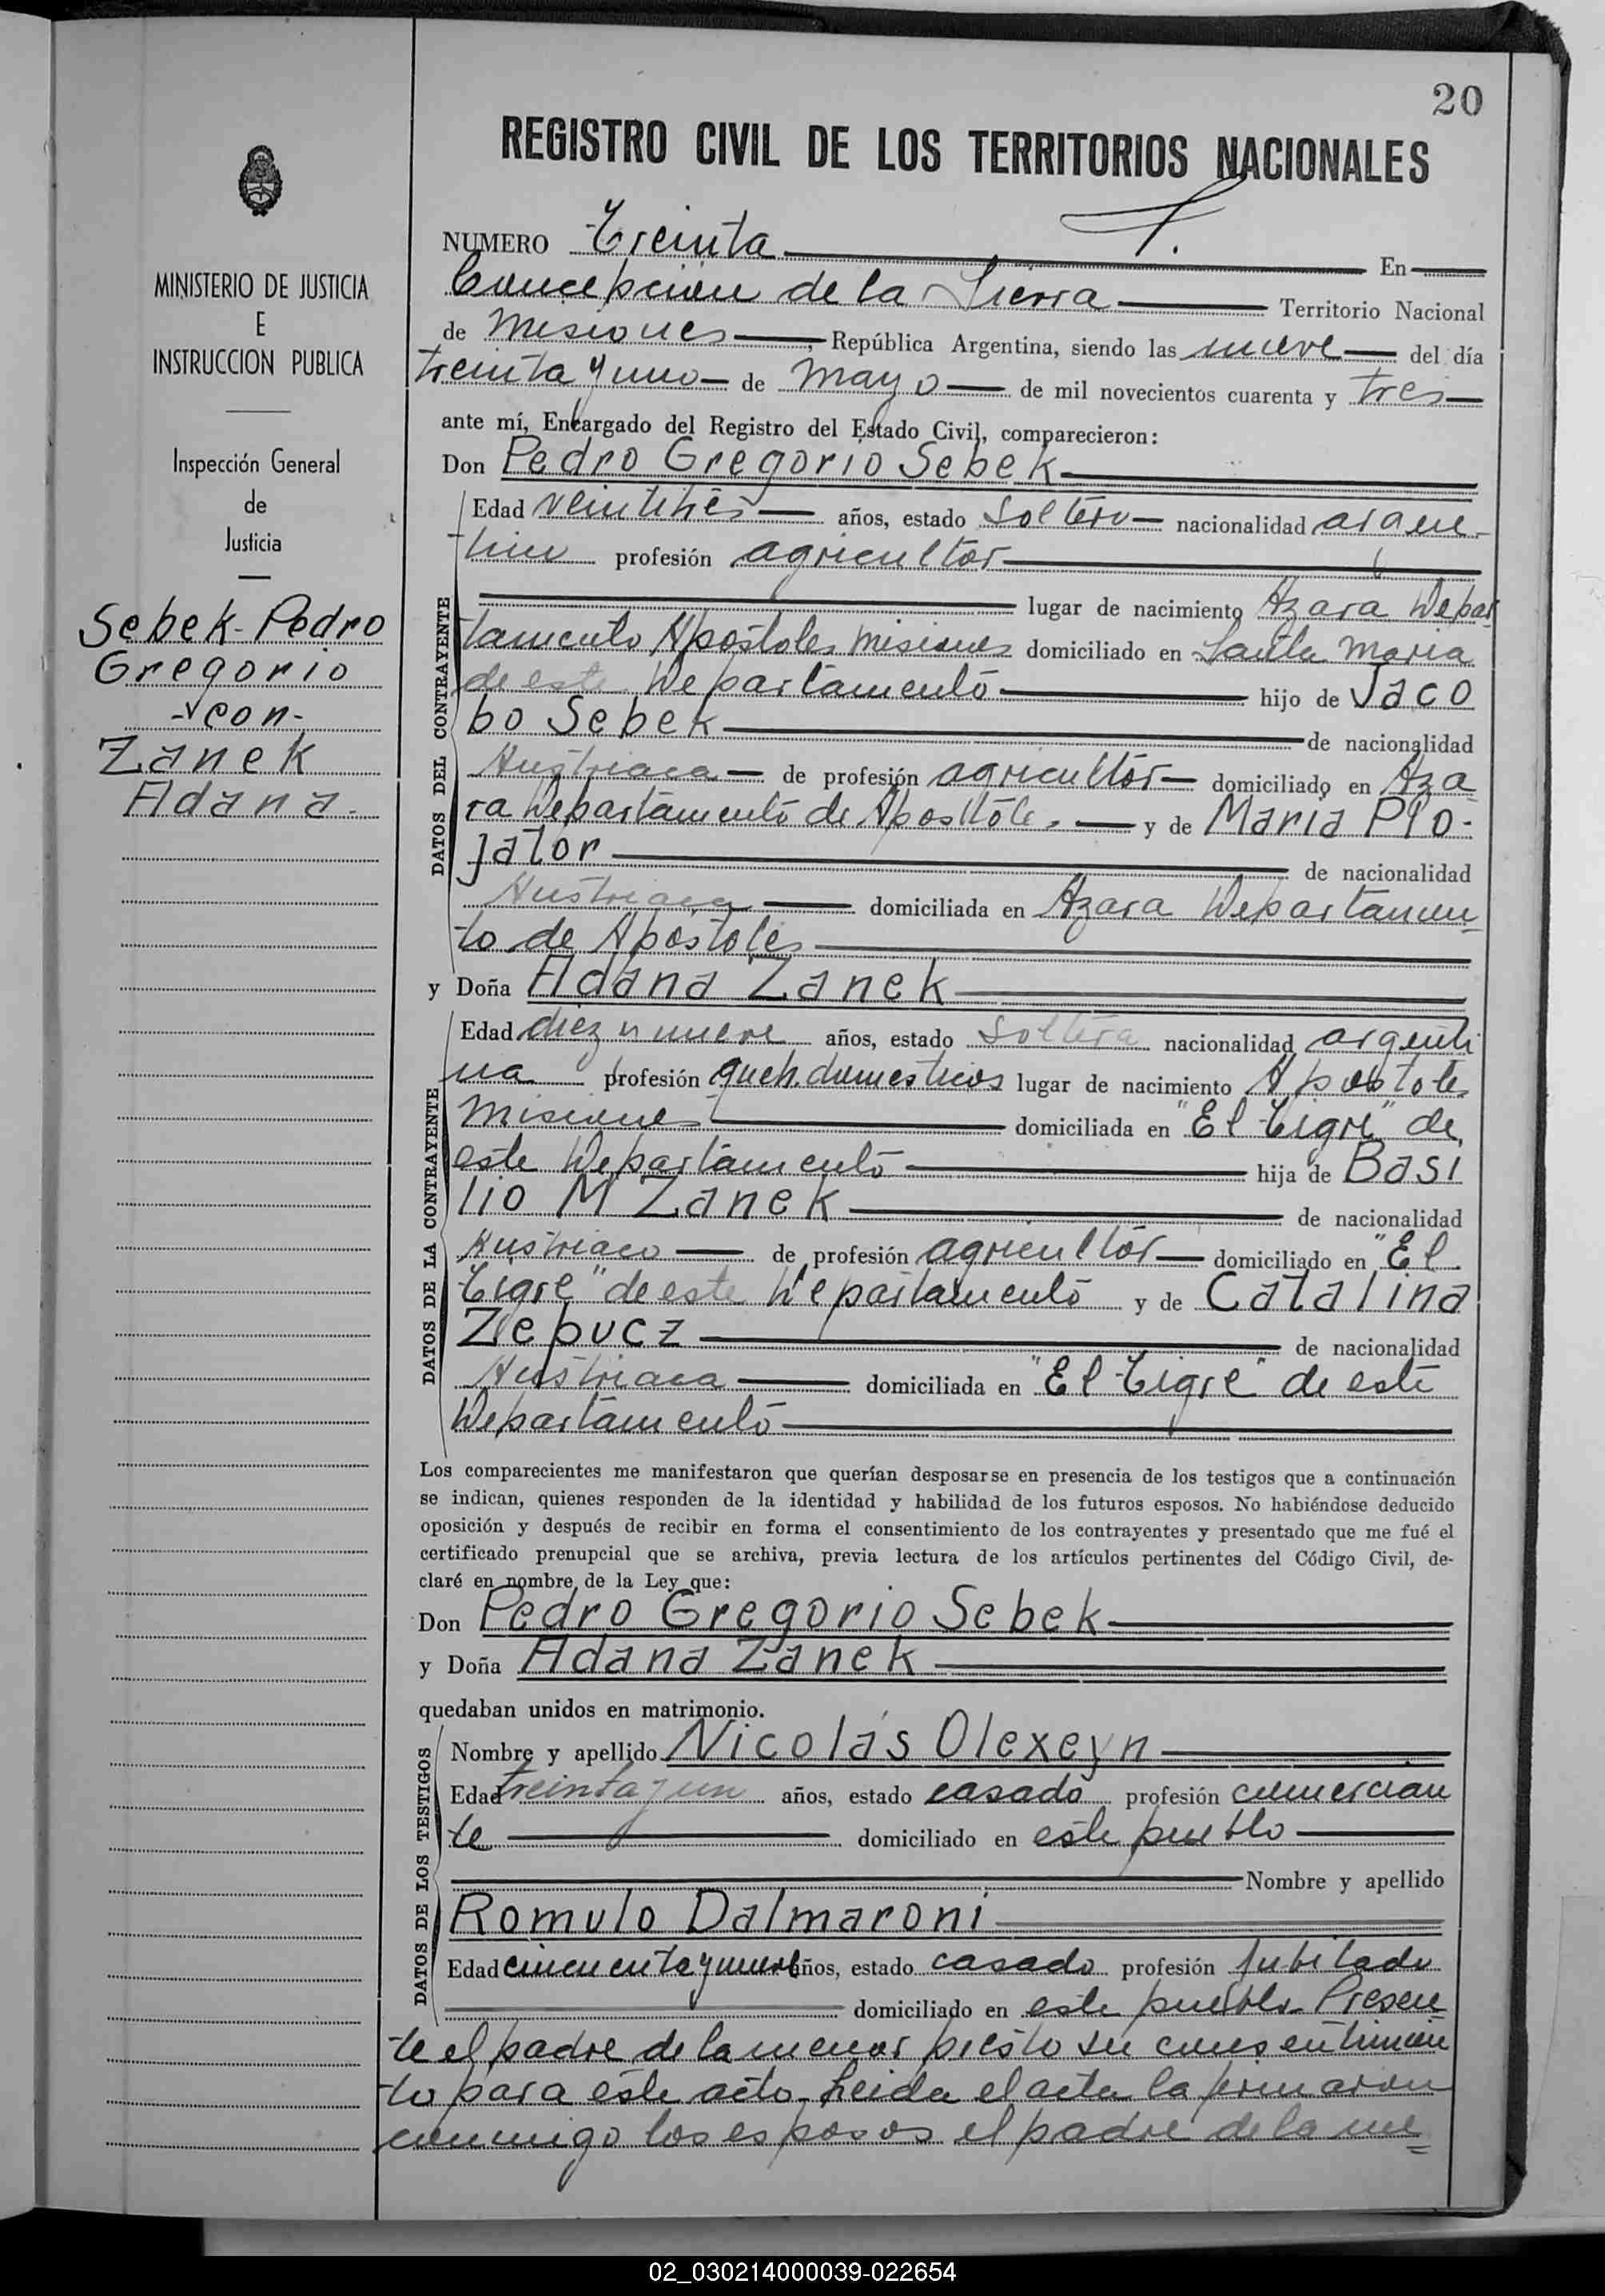 20
REGISTRO CIVIL DE LOS TERRITORIOS NACIONALES
MINISTERIO DE JUSTICIA
E
INSTRUCCION PUBLICA
Inspección General
de
Justicia
Sebek-Pedro
Gregorio
-con-
Zanek
Adana.
NUMERO Treinta En
Concepcion de la Sierra Territorio Nacional
de Misiones, República Argentina, siendo las nueve del día
treinta y uno de Mayo de mil novecientos cuarenta y tres
ante mí, Encargado del Registro del Estado Civil, comparecieron:
Don Pedro Gregorio Sebek
DATOS DEL CONTRAYENTE
Edad veintitres años, estado soltero nacionalidad argen-
tino profesión agricultor
lugar de nacimiento Azara Depar
tamento Apostoles Misiones domiciliado en Santa Maria
de este Departamento hijo de Jaco
bo Sebek de nacionalidad
Austriaca de profesión agricultor domiciliado en Aza
ra Departamento de Apostoles y de Maria Plo-
jator de nacionalidad
Austriaca domiciliada en Azara Departamen
to de Apostoles
y Doña Adana Zanek
DATOS DE LA CONTRAYENTE
Edad diez y nueve años, estado soltera nacionalidad argenti
na profesión queh. domesticos lugar de nacimiento Apostoles
Misiones domiciliada en "El Tigre" de
este Departamento hija de Basi
lio M Zanek de nacionalidad
Austriaco de profesión agricultor domiciliado en "El
Tigre" de este Departamento y de Catalina
Zepucz de nacionalidad
Austriaca domiciliada en "El Tigre" de este
Departamento
Los comparecientes me manifestaron que querían desposarse en presencia de los testigos que a continuación
se indican, quienes responden de la identidad y habilidad de los futuros esposos. No habiéndose deducido
oposición y después de recibir en forma el consentimiento de los contrayentes y presentado que me fué el
certificado prenupcial que se archiva, previa lectura de los artículos pertinentes del Código Civil, de-
claré en nombre de la Ley que:
Don Pedro Gregorio Sebek
y Doña Adana Zanek
quedaban unidos en matrimonio.
DATOS DE LOS TESTIGOS
Nombre y apellido Nicolás Olexeyn
Edad treinta y un años, estado casado profesión comercian
te domiciliado en este pueblo
Nombre y apellido
Romulo Dalmaroni
Edad cincuenta y nueve años, estado casado profesión Jubilado
domiciliado en este pueblo- Presen
te el padre de la menor presto su consentimien
to para este acto- Leida el acta la firmaron
conmigo los esposos el padre de la me
02_030214000039-022654